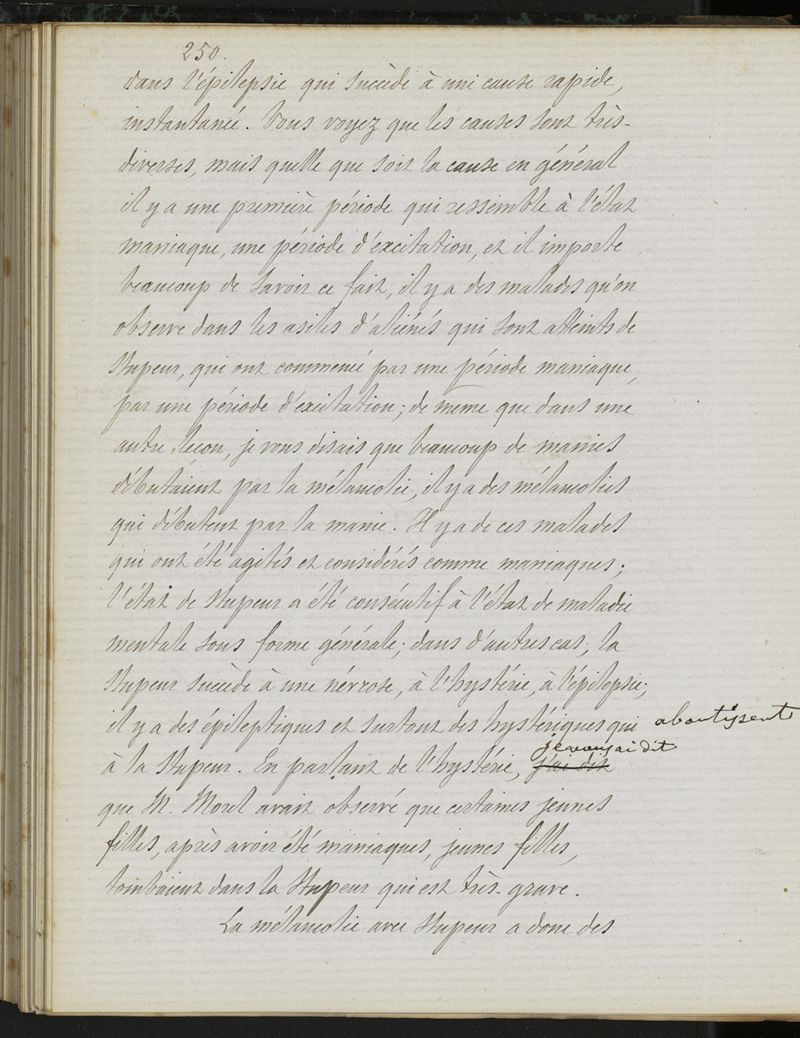 250.
dans l'épilepsie qui succède à une cause rapide,
instantanée. Vous voyez que les causes sont très-
diverses, mais quelle que soit la cause en général
il y a une première période qui ressemble à l'état
maniaque, une période d'excitation, et il importe
beaucoup de savoir ce fait, il y a des malades qu'on
observe dans les asiles d'aliénés qui sont atteints de
stupeur, qui ont commencé par une période maniaque,
par une période d'excitation; de même que dans une
autre leçon, je vous disais que beaucoup de manies
débutaient par la mélancolie, il y a des mélancolies
qui débutent par la manie. Il y a de ces malades
qui ont été agités et considérés comme maniaques;
l'état de stupeur a été consécutif à l'état de maladie
mentale sous forme générale; dans d'autres cas, la
stupeur succède à une névrose, à l'hystérie, à l'épilepsie;
il y a des épileptiques et surtout des hystériques qui aboutissent
je vous ai dit
à la stupeur. En parlant de l'hystérie, j'ai dit
que M. Morel avait observé que certaines jeunes
filles, après avoir été maniaques, jeunes filles,
tombaient dans la stupeur qui est très-grave.
La mélancolie avec stupeur a donc des